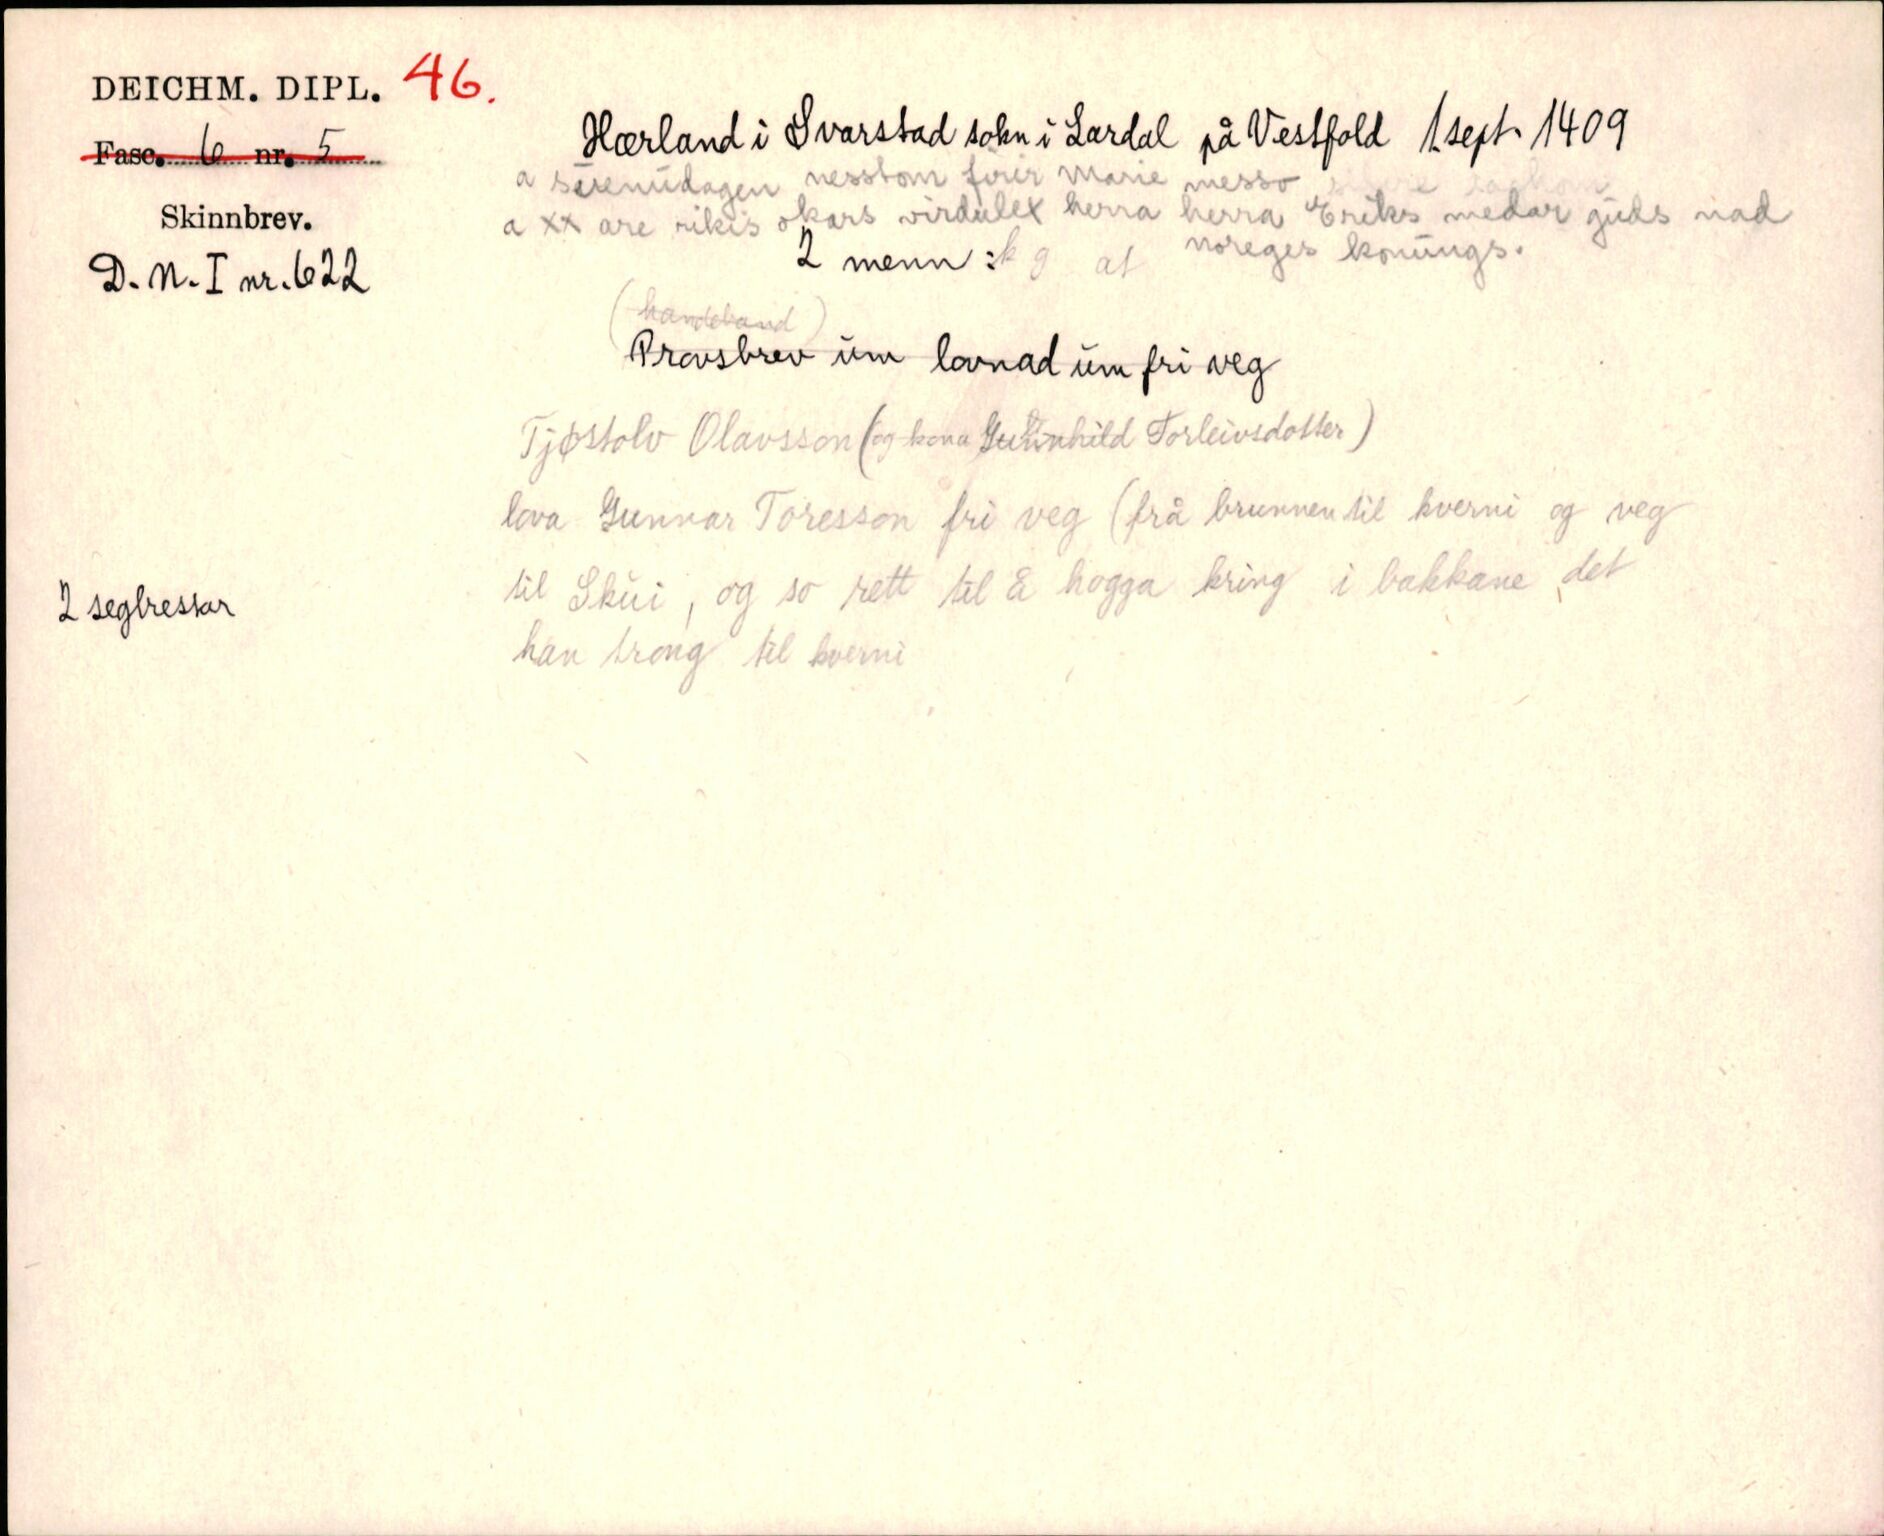 DEICHM. DIPL. 46.
Fasc. 6 nr. 5
Skinnbrev.
D.N. I nr. 622
2 seglrestar
Hærland i Svarstad sokn i Lardal på Vestfold 1. sept. 1409
a sunnudagen nesstom firir Marie messo
a xx are rikis okars virdulex herra herra Eriks medar guds nad
noreges konungs.
2 menn: k g at
(handeband)
Provsbrev um lovnad um fri veg
Tjøstolv Olavsson (og kona Gunnhild Torleivsdotter)
lova Gunnar Toresson fri veg (frå brunnen til kverni og veg
til Skui, og so rett til å hogga kring i bakkane det
han trong til kverni